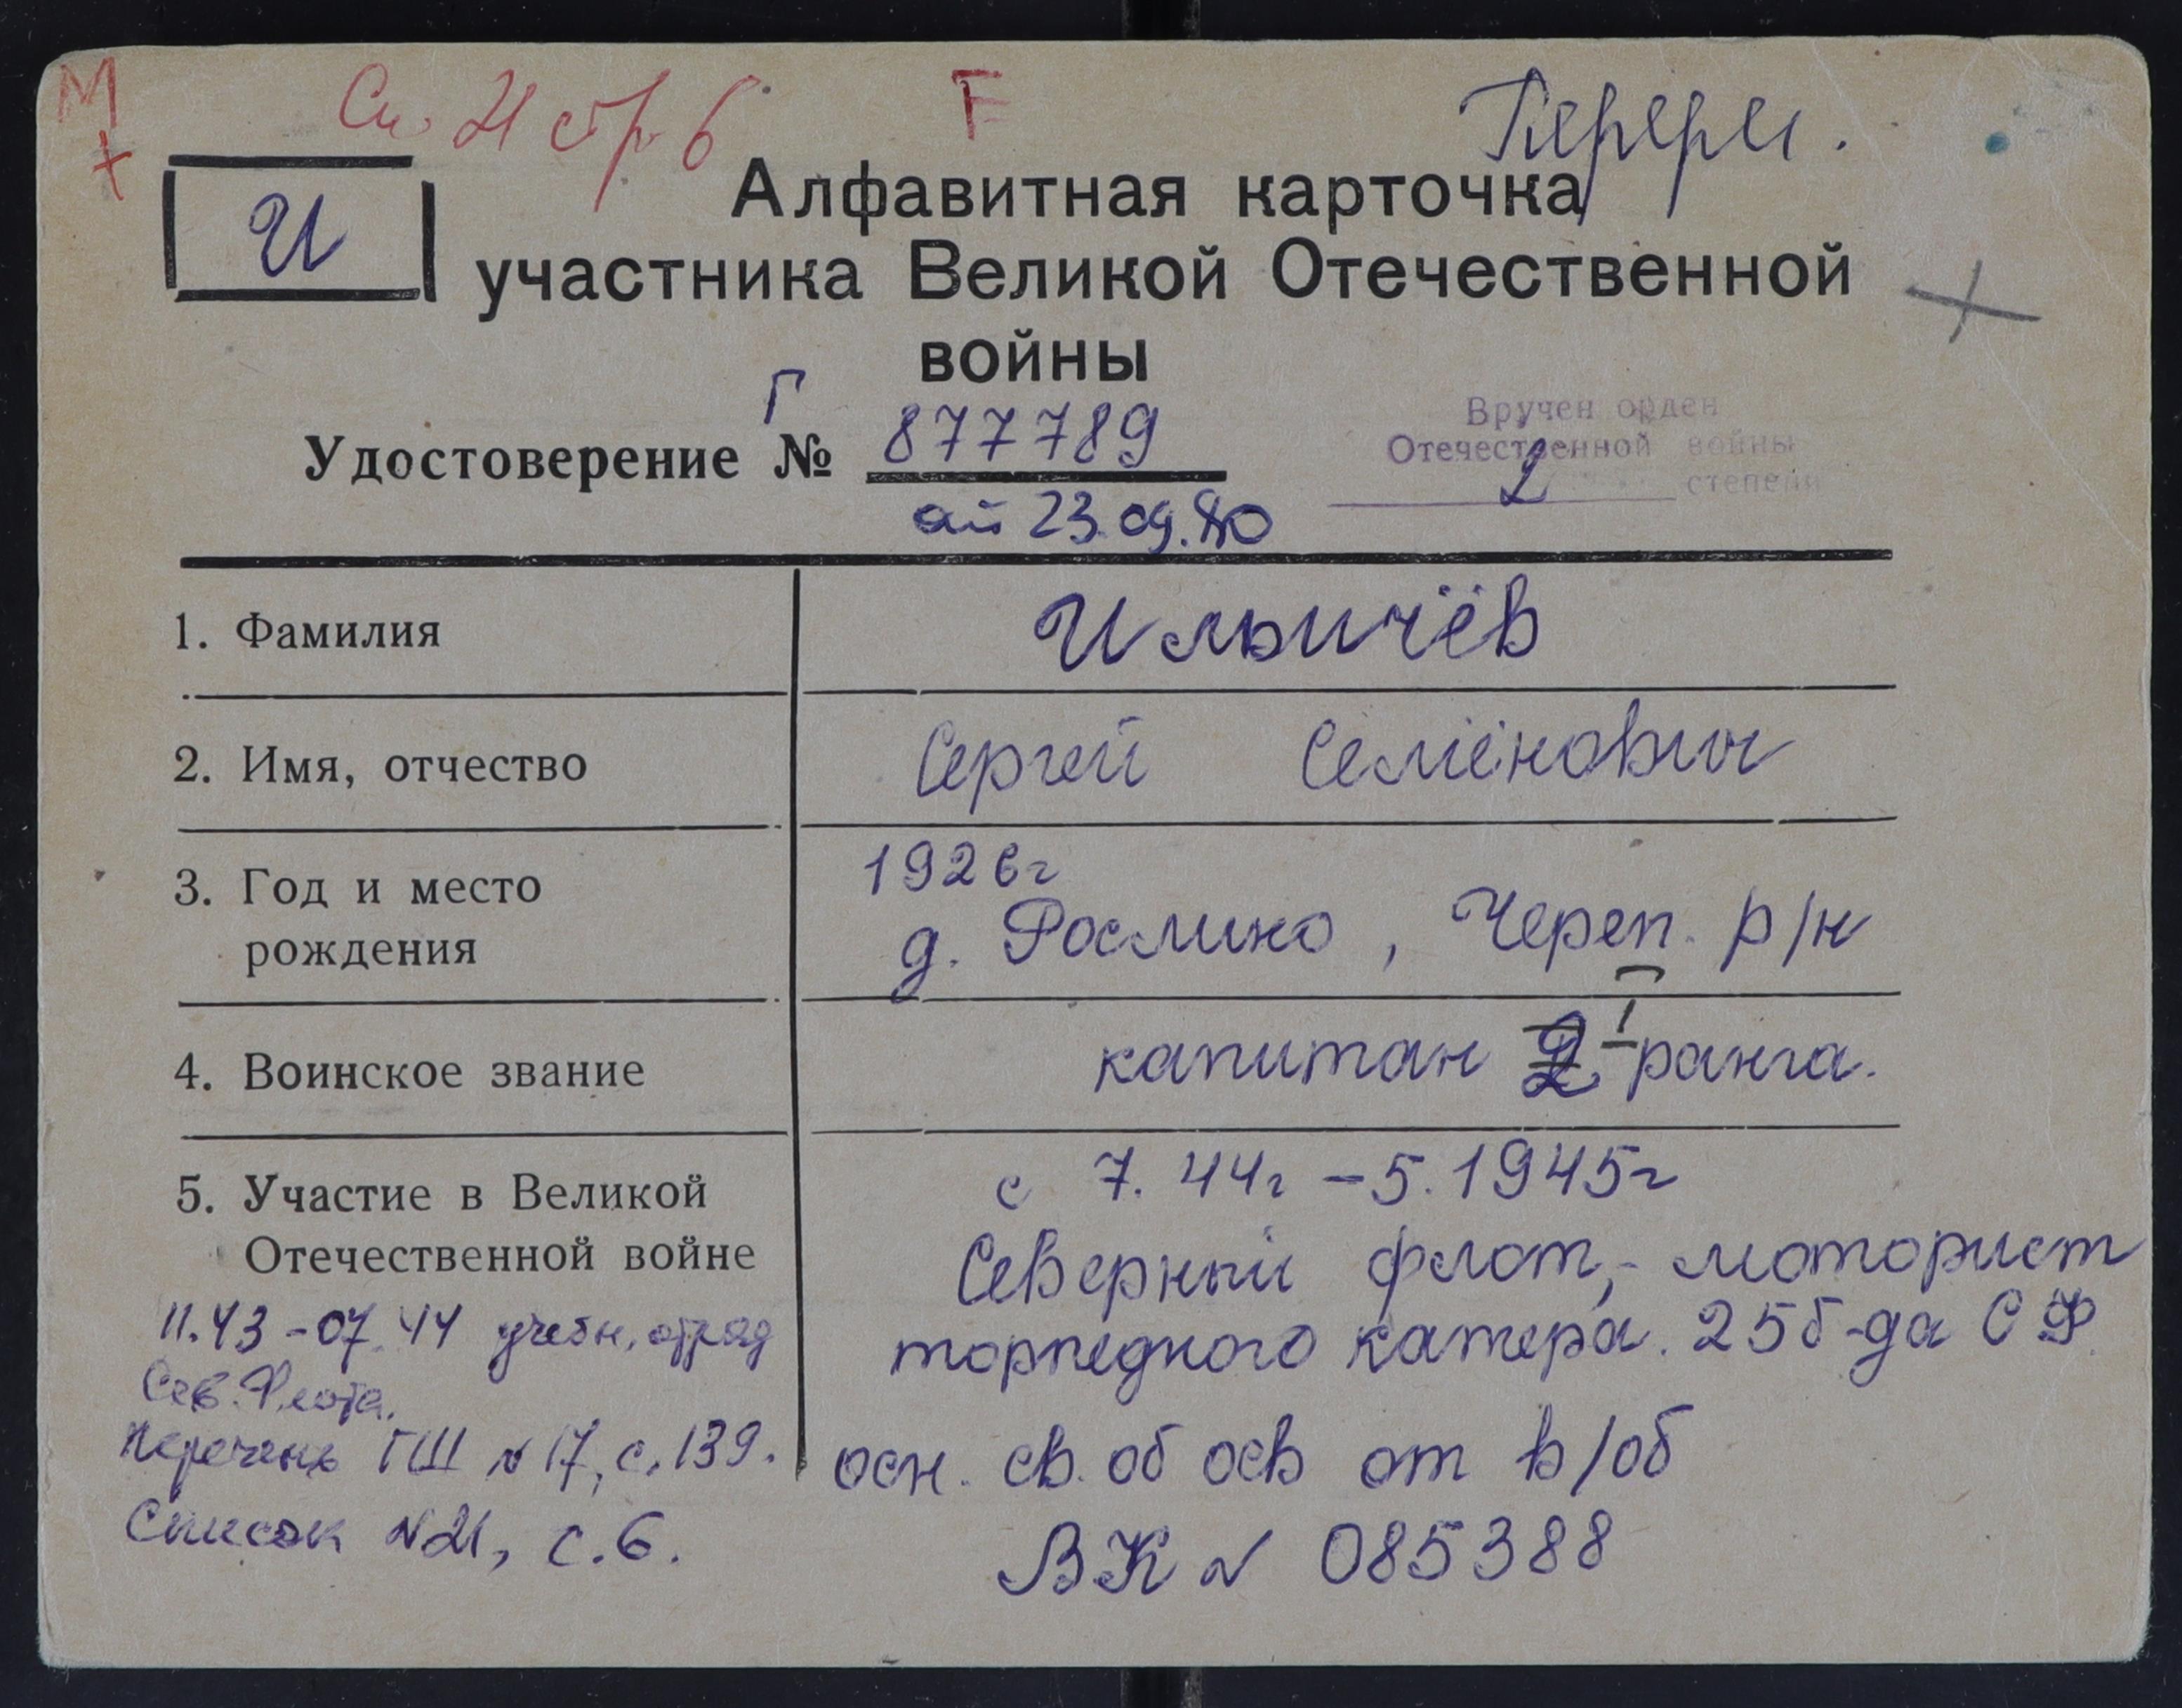 М Сп. 21 стр. 6 F Перерег.
+
И
Алфавитная карточка
участника Великой Отечественной
войны
Удостоверение Г № 877789
от 23.09.80
Вручен орден
Отечественной войны
2 степени
1. Фамилия Ильичёв
2. Имя, отчество Сергей Семёнович
3. Год и место 1926г
рождения д. Рослино, Череп. р/н
4. Воинское звание капитан 2 1 ранга.
5. Участие в Великой
Отечественной войне
11.43-07.44 учебн. отряд
Сев. Флота.
Перечень ГШ №17, с. 139.
Список №21, с. 6.
с 7.44г - 5.1945г
Северный флот, - моторист
торпедного катера. 25б-да СФ.
осн. св. об осв от в/об
ВК № 085388